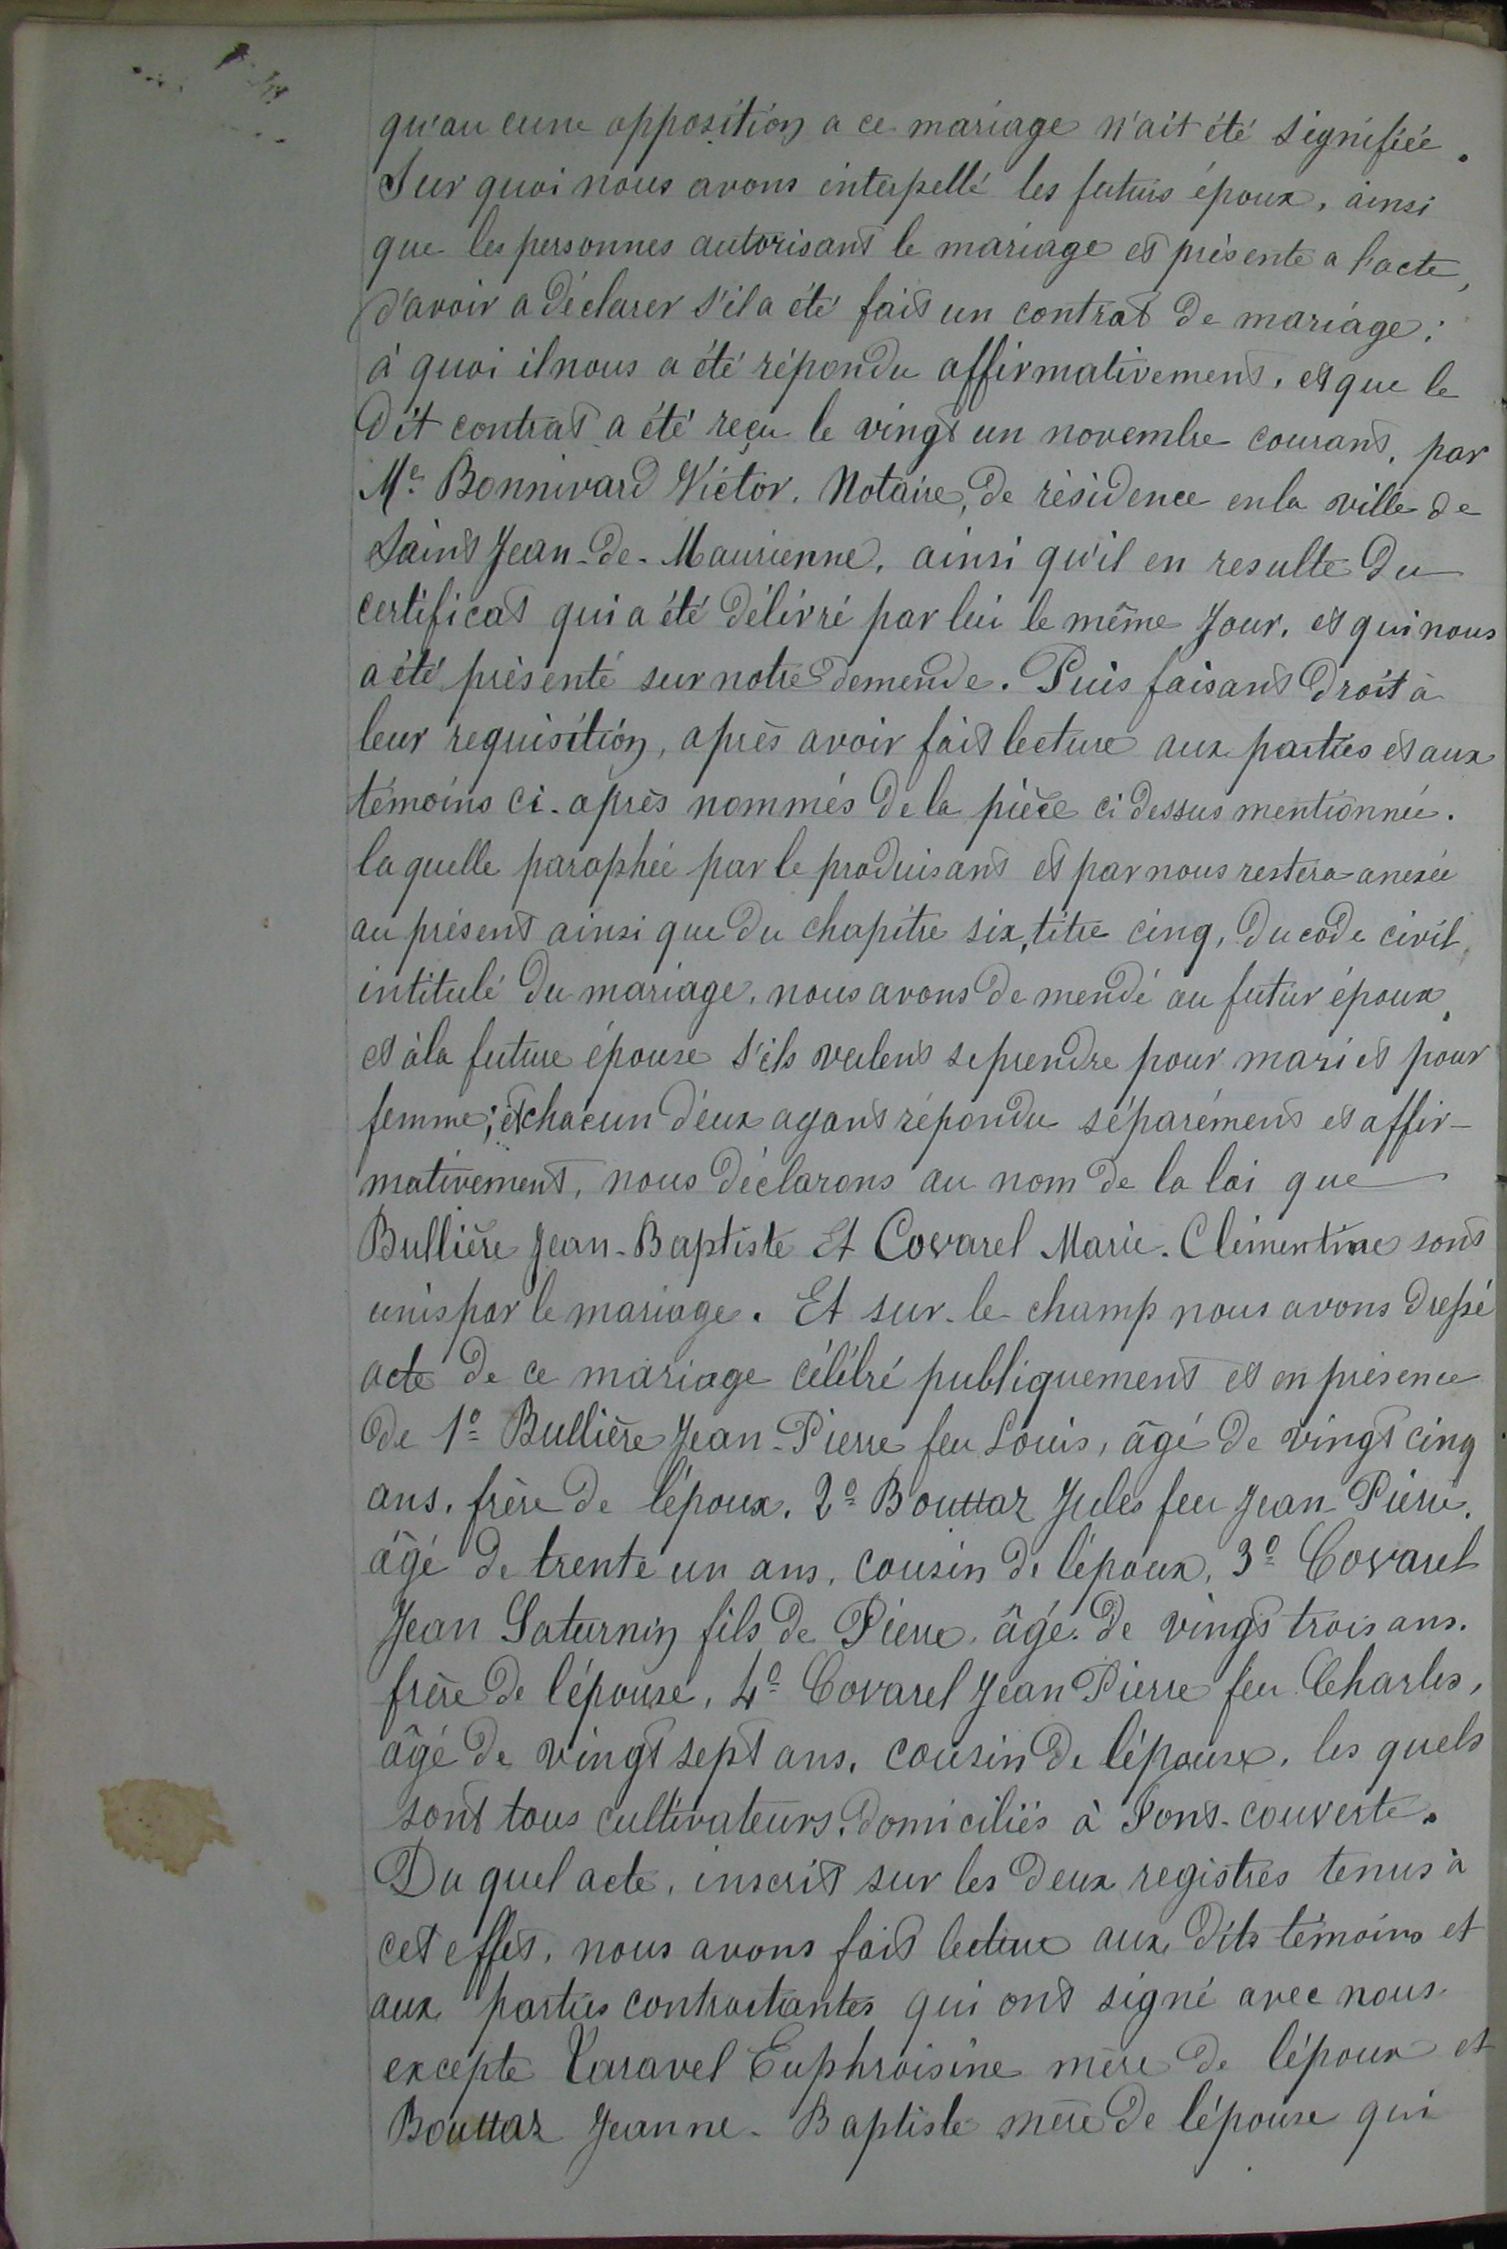 qu'aucune opposition a ce mariage n'ait été signifiée.
Sur quoi nous avons interpellé les futurs époux, ainsi
que les personnes autorisant le mariage et présente a l'acte,
d'avoir a déclarer s'il a été fait un contrat de mariage :
à quoi il nous a été répondu affirmativement, et que le
dit contrat a été reçu le vingt un novembre courant, par
Me Bonnivard Victor, Notaire, de résidence en la ville de
Saint Jean-de-Maurienne, ainsi qu'il en resulte du
certificat qui a été délivré par lui le même jour, et qui nous
a été présenté sur notre demende. Puis faisant droit à
leur requisition, après avoir fait lecture aux parties et aux
témoins ci-après nommés de la pièce ci dessus mentionnée.
la quelle paraphée par le produisant et par nous restera anexée
au présent ainsi que du chapitre six, titre cinq, du code civil,
intitulé du mariage, nous avons demendé au futur époux,
et à la future épouse s'ils veulent se prendre pour mari et pour
femme; et chacun d'eux ayant répondu séparément et affir-
mativement, nous déclarons au nom de la loi que
Bullière Jean-Baptiste Et Covarel Marie-Clémentine sont
unis par le mariage. Et sur-le-champ nous avons dressé
acte de ce mariage célébré publiquement et en présence
de 1o Bullière Jean-Pierre feu Louis, âgé de vingt cinq
ans, frère de l'époux, 2o Bouttaz Jules feu Jean Pierre,
âgé de trente un ans, cousin de l'époux, 3o Covarel
Jean Saturnin fils de Pierre, âgé de vingt trois ans.
frère de l'épouse, 4o Covarel Jean Pierre feu Charles,
âgé de vingt sept ans, cousin de l'épouse, les quels
sont tous cultivateurs, domiciliés à Font-couverte.
Du quel acte, inscrit sur les deux registres tenus à
cet effet, nous avons fait lecture aux dits témoins et
aux parties contractantes qui ont signé avec nous
excepte Varavel Euphroisine mère de l'époux et
Bouttaz Jeanne-Baptiste mère de l'épouse qui